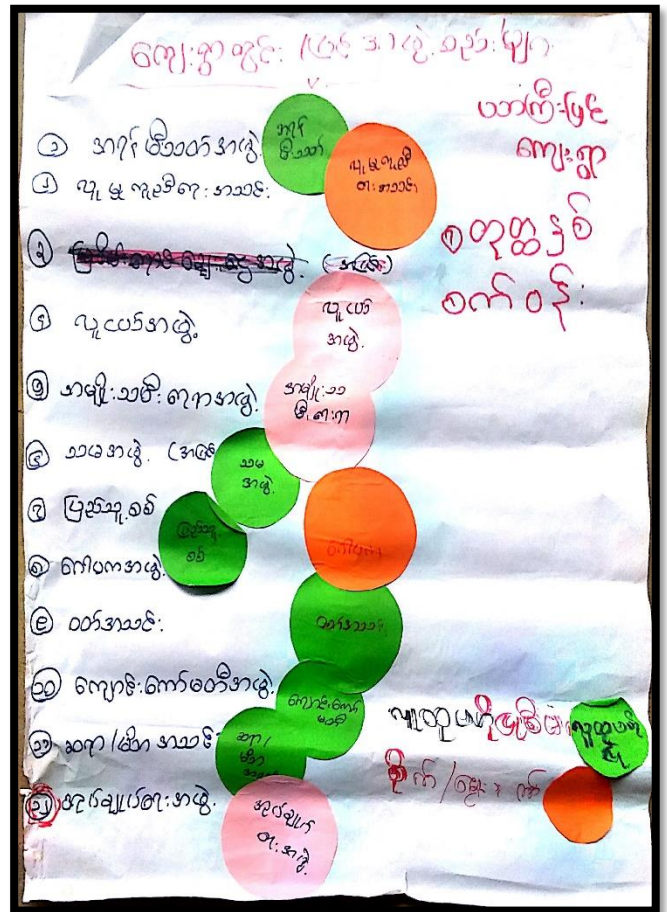 ကျေးရွာတွင်း /ပြင် အဖွဲ့အစည်းများ
ယာကြီးပြင်
ကျေးရွာ
စက်ဝန်း
၁ အရန်မီးသတ်အဖွဲ့
အရန်
မီးသတ်
၂ လူမှုကူညီရေးအသင်း
လူမှုကူညီ
ရေးအသင်း
၃
၄ လူငယ်အဖွဲ့
လူငယ်
အဖွဲ့
၅ အမျိုးသမီးရေးရာအဖွဲ့
အမျိုးသ
မီးရေးရာ
၆ သမအဖွဲ့
သမ
အဖွဲ့
၇ ပြည်သူ့စစ်
ပြည်သူ့
စစ်
၈ ဂေါပကအဖွဲ့
ဂေါပက
၉ ဝတ်အသင်း
ဝတ်အသင်း
၁၀ ကျောင်းကော်မတီအဖွဲ့
ကျောင်းကော်
မတီ
၁၁ ဆရာ/မိဘ အသင်း
ဆရာ/
မိဘ
၁၂ အုပ်ချုပ်ရေးအဖွဲ့
အုပ်ချုပ်
ရေးအဖွဲ့
စိုက်/မွေး